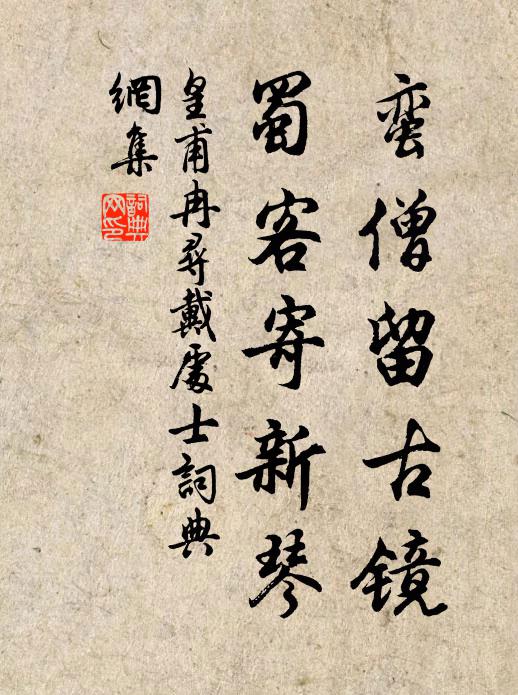 蛮僧留古镜
蜀客寄新琴
皇甫冉尋戴處士詞典
網集
詞典网印